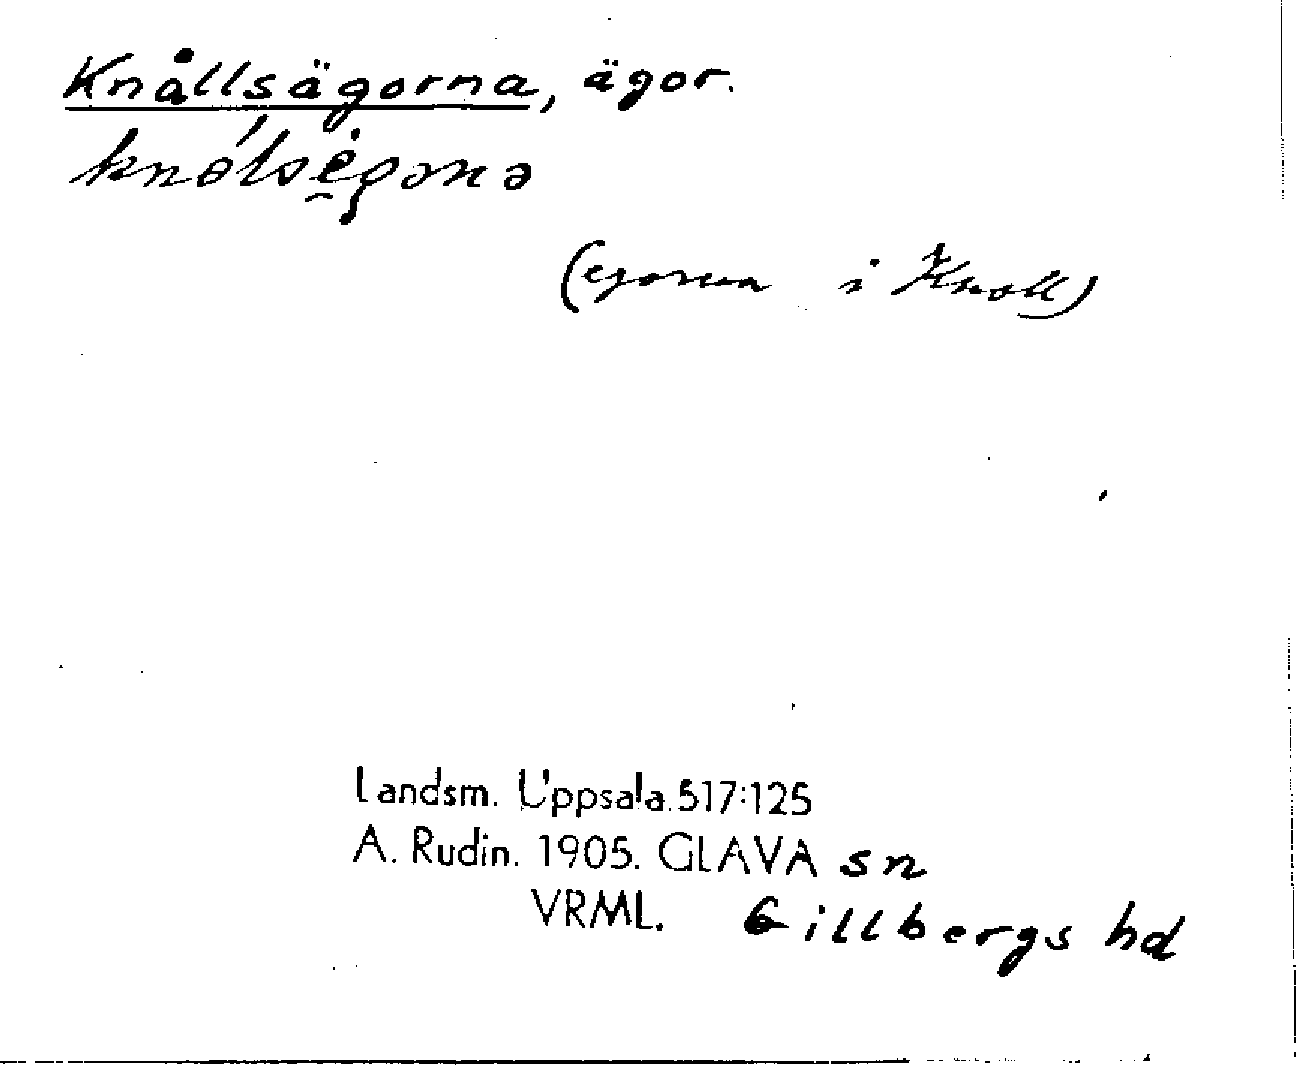 Knållsägorna, ägor.
knólségəɳə
(egorna i Knoll)
Landsm. Uppsala. 517:125
A. Rudin. 1905. GLAVA sn
VRML. Gillbergs hd